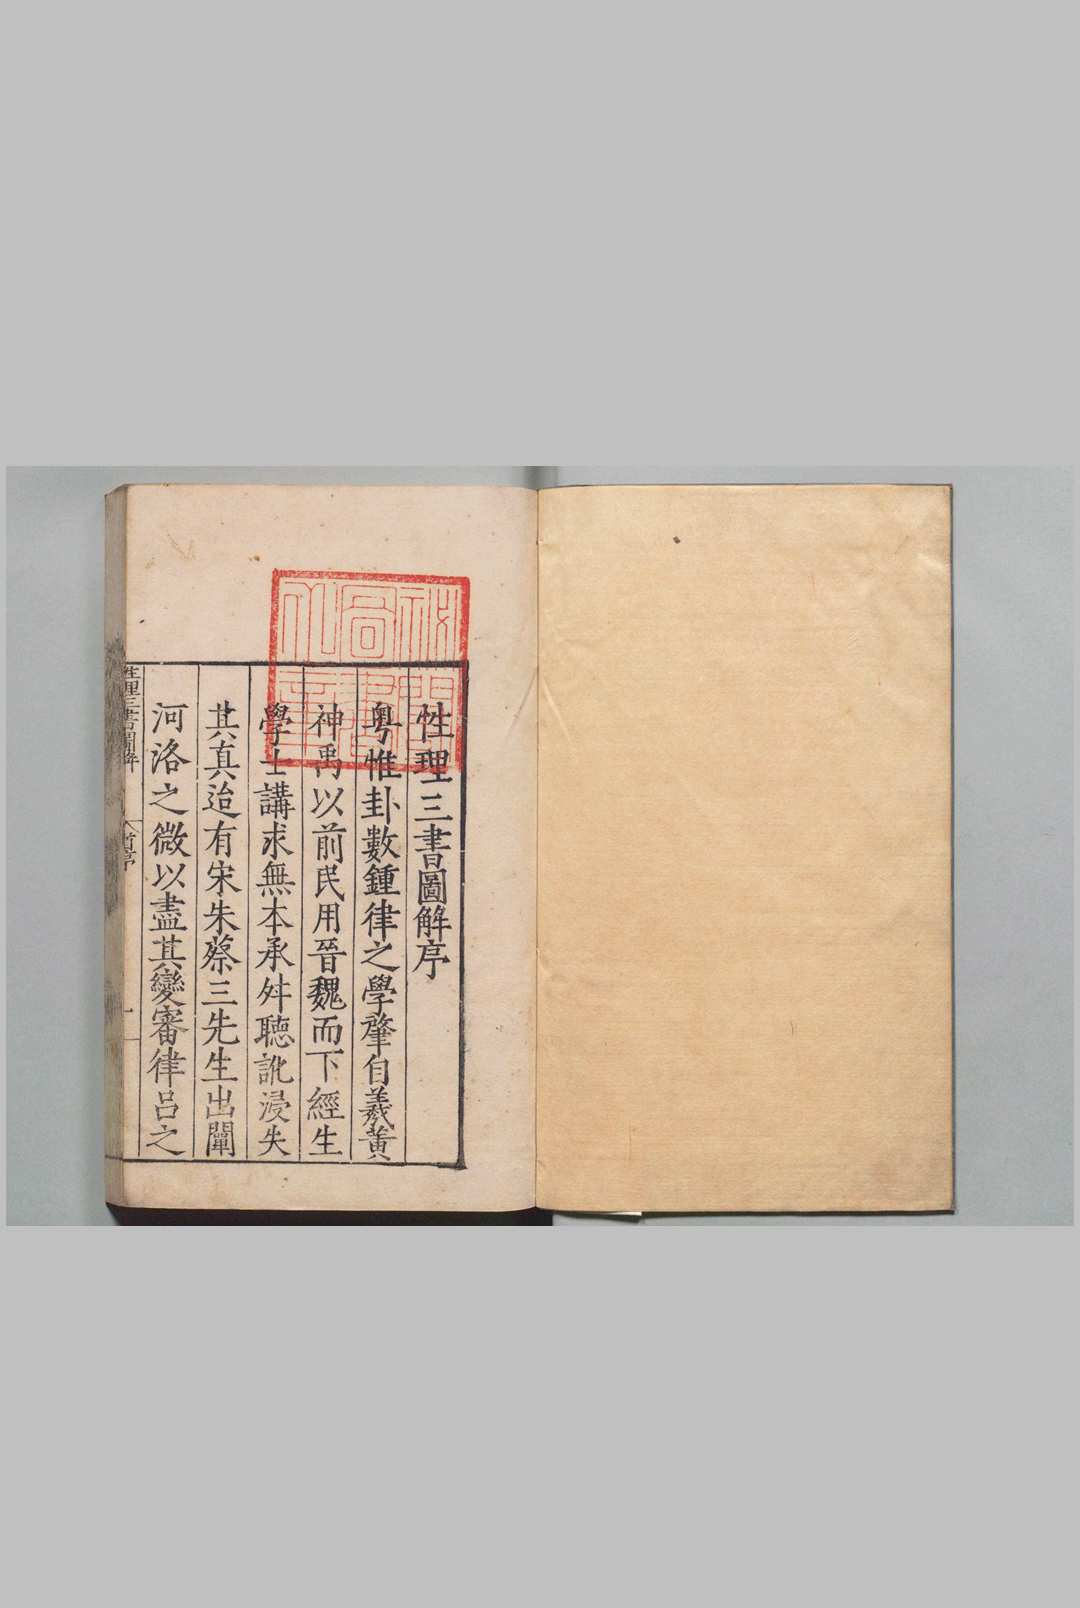 性理三書圖解序
粵惟卦數鍾律之學肇自羲黃
神禹以前民用晉魏而下經生
學士講求無本承舛聽訛浸失
其真迨有宋朱蔡三先生出闡
河洛之微以盡其變審律呂之
性理三書圖解
首序
一